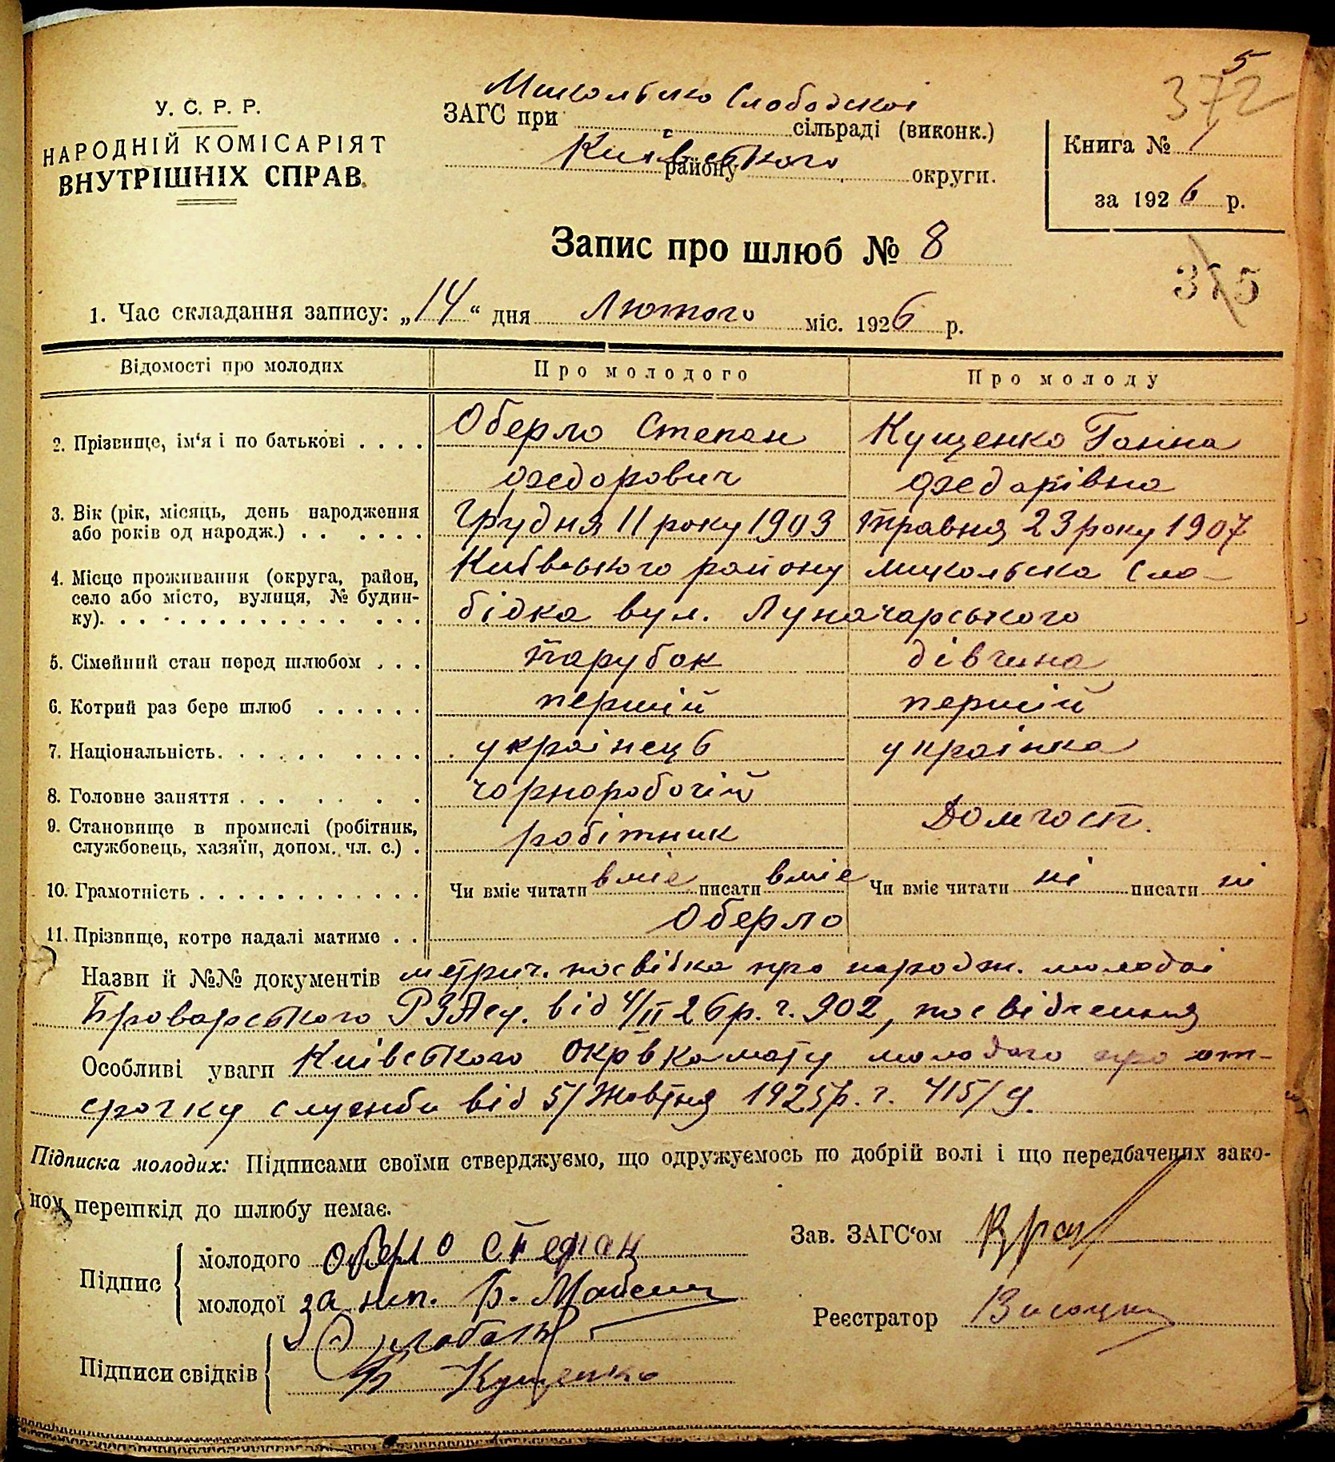 5
372
У. С. Р. Р.
НАРОДНІЙ КОМІСАРІЯТ
ВНУТРІШНІХ СПРАВ.
Микольсько Слободскоі
ЗАГС при сільраді (виконк.)
Київського
району округи.
Книга № 1
за 1926 р.
Запис про шлюб № 8
375
1. Час складання запису: „14“ дня Лютого міс. 1926 р.
Відомості про молодих Про молодого Про молоду
2. Прізвище, ім‘я і по батькові . . . . Оберло Степан Кущенко Ганна
федорович федорівна
3. Вік (рік, місяць, день народження Грудня 11 року 1903 травня 23 року 1907
або років од народж.) . . . . . .
4. Місце проживання (округа, район, Київського району микольска Сло-
село або місто, вулиця, № будин- бідка вул. Луначарського
ку). . . . . . . . . . . . . . . .
5. Сімейний стан перед шлюбом . . . парубок дівчина
6. Котрий раз бере шлюб . . . . . . перший перший
7. Національність. . . . . . . . . . українець українка
8. Головне заняття . . . . . . . . чорноробочій
9. Становище в промислі (робітник, робітник Домгосп.
службовець, хазяїн, допом. чл. с.) .
10. Грамотність . . . . . . . . . . . . Чи вміє читати вміє писати вміє Чи вміє читати ні писати ні
11. Прізвище, котре надалі матиме . . Оберло
Назви й №№ документів метрич. посвідка про народж. молодоі
Броварського РЗАСу. від 4/II 26 р. ч. 902, посвідчення
Особливі уваги Київського Окрвкомату молодого про от-
срочку служби від 5/Жовтня 1925 р. ч. 415/у.
Підписка молодих: Підписами своїми стверджуємо, що одружуємось по добрій волі і що передбачених зако-
ном перешкід до шлюбу немає.
Підпис
молодого оберло степан
молодої за неп. Б.
Підписи свідків
Кущенко
Зав. ЗАГС‘ом
Реєстратор